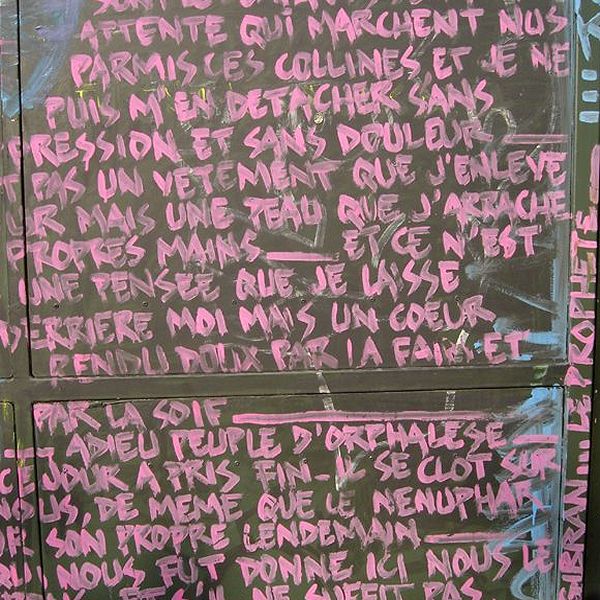 ATTENTE QUI MARCHENT NUS
PARMIS CES COLLINES ET JE NE
PUIS M'EN DETACHER SANS
PRESSION ET SANS DOULEUR
PAS UN VETEMENT QUE J'ENLEVE
UR MAIS UNE PEAU QUE J'ARRACHE
PROPRES MAINS ET CE N'EST
UNE PENSEE QUE JE LAISSE
DERRIERE MOI MAIS UN COEUR
RENDU DOUX PAR LA FAIM ET
PAR LA SOIF
ADIEU PEUPLE D'ORPHALESE
JOUR A PRIS FIN - IL SE CLOT SUR
US, DE MEME QUE LE NENUPHAR
SON PROPRE LENDEMAIN
NOUS FUT DONNE ICI NOUS LE
ET S'IL NE SUFFIT PAS
IBRAN... LE PROPHETE